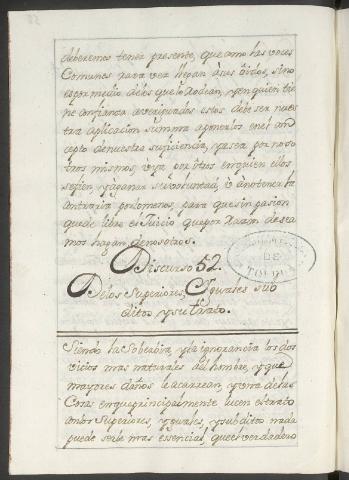 deberemos tener presente, que como las voces
Comunes rara vez llegan à sus òidos, sino
es por medio de los que lo rodean, y en quien tie
ne confianza averiguados estos debe ser nues
tra aplicacion summa aponerlos en el con
cepto denuestra suficiencia, ya sea por noso
tros mismos, ò ya por otros en quien ellos
se fien, y àganar su voluntad, ò ànotenerla
contraria por lo menos, para que sin pasion
quede libre el Juicio que por razon desea
mos hagan denosotros.
Discurso 52.
Delos Superiores, Yguales sub
ditos y su trato.
Siendo la Soberbia, y la ignorancia los dos
vicios mas naturales del hombre, y que
mayores daños le acarrean, y una de las
Cosas en que principalmente lucen es trato
con los Superiores, yguales, y subditos nada
puede serle mas essencial, que el verdadero